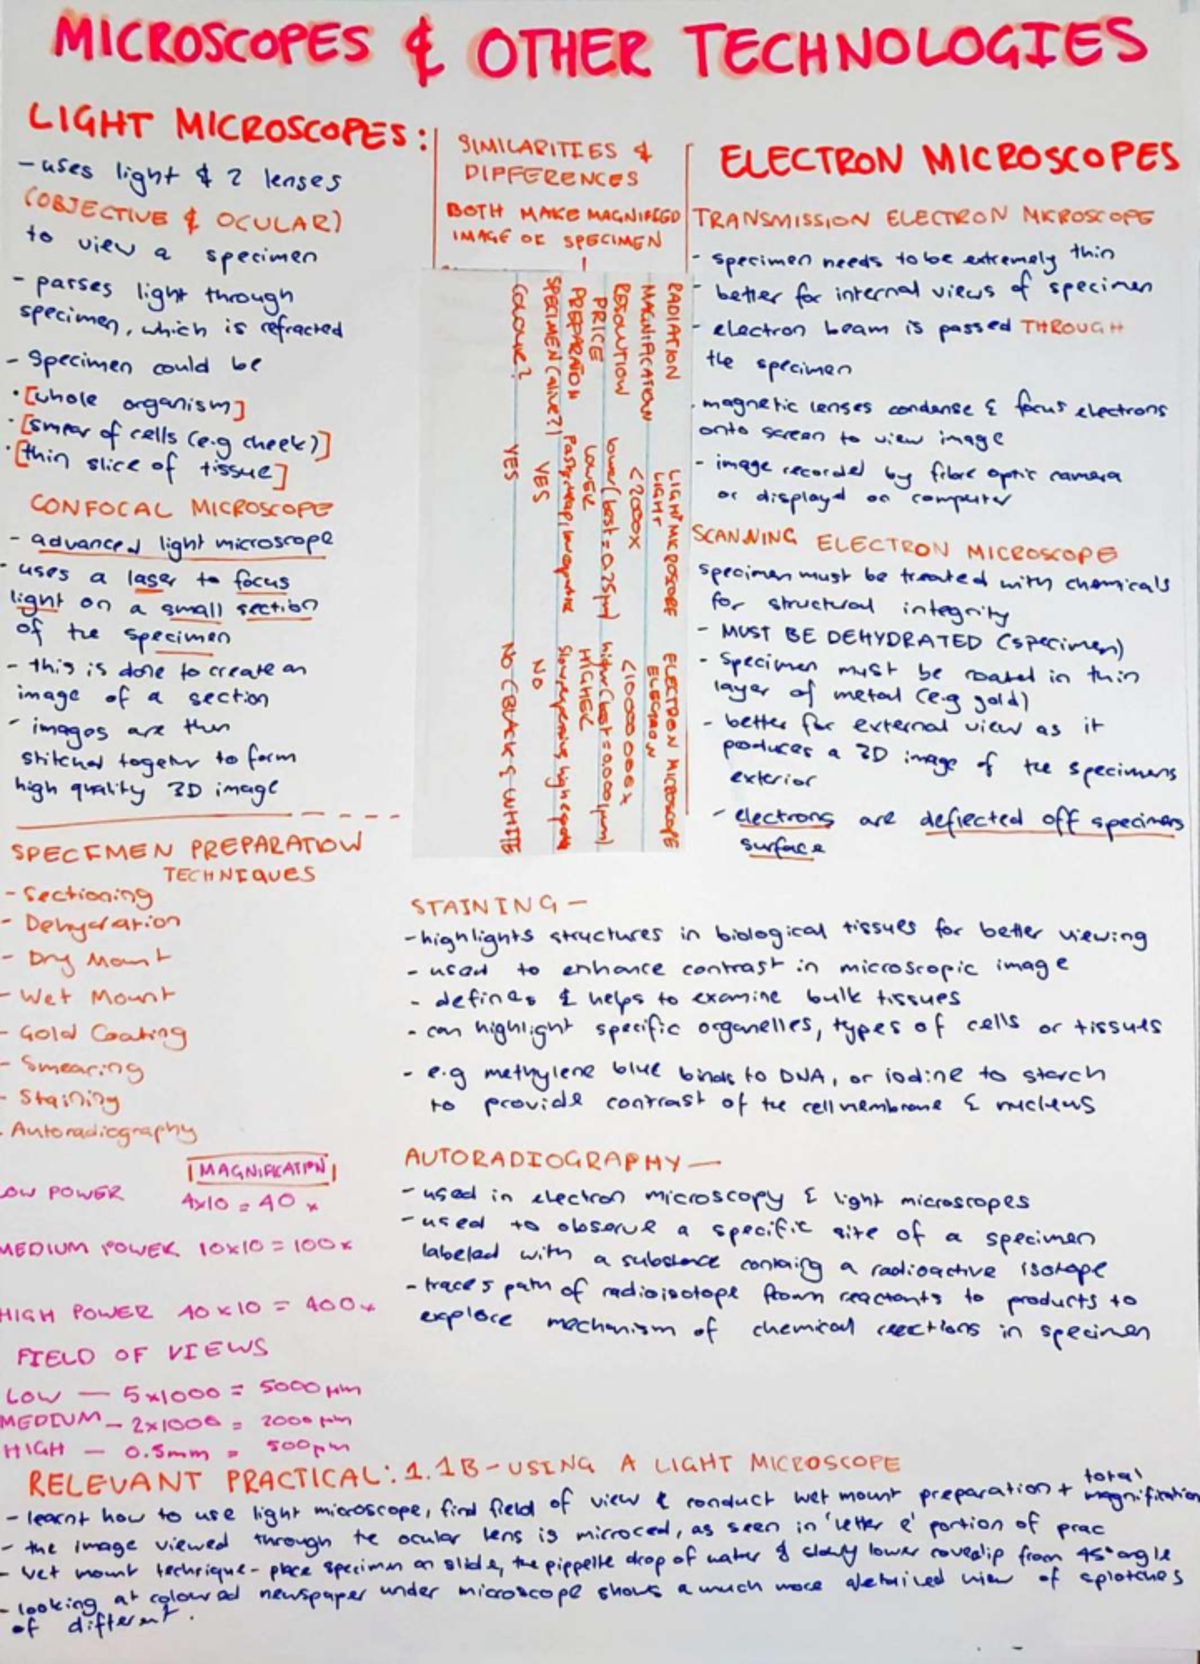 MICROSCOPES & OTHER TECHNOLOGIES
LIGHT MICROSCOPES:
- uses light & 2 lenses
(OBJECTIVE & OCULAR)
to view a specimen
- parses light through
specimen, which is refracted
- Specimen could be
· [whole organism]
· [smear of cells (e.g cheek)]
· [thin slice of tissue]
CONFOCAL MICROSCOPE
- advanced light microscope
- uses a laser to focus
light on a small section
of the specimen
- this is done to create an
image of a section
- images are then
stitched together to form
high quality 3D image
SPECIMEN PREPARATION
TECHNIQUES
- Sectioning
- Dehydration
- Dry Mount
- Wet Mount
- Gold Coating
- Smearing
- Staining
- Autoradiography
MAGNIFICATION
LOW POWER 4x10 = 40x
MEDIUM POWER 10x10 = 100x
HIGH POWER 40x10 = 400x
FIELD OF VIEWS
LOW — 5x1000 = 5000µm
MEDIUM - 2x1000 = 2000µm
HIGH - 0.5mm = 500µm
SIMILARITIES &
DIFFERENCES
BOTH MAKE MAGNIFIED
IMAGE OF SPECIMEN
LIGHT MICROSCOPE ELECTRON MICROSCOPE
RADIATION LIGHT ELECTRON
MAGNIFICATION <2000x
RESOLUTION lower (best = 0.25µm) higher
PRICE LOWER HIGHER
PREPARATION
SPECIMEN (alive?) YES NO
COLOUR? YES NO (BLACK & WHITE
ELECTRON MICROSCOPES
TRANSMISSION ELECTRON MICROSCOPE
- specimen needs to be extremely thin
- better for internal views of specimen
- electron beam is passed THROUGH
the specimen
- magnetic lenses condense & focus electrons
onto screen to view image
- image recorded by fibre optic camera
or displayd on computer
SCANNING ELECTRON MICROSCOPE
specimen must be treated with chemicals
for structural integrity
- MUST BE DEHYDRATED (specimen)
- Specimen must be coated in thin
layer of metal (e.g gold)
- better for external view as it
produces a 3D image of the specimens
exterior
- electrons are deflected off specimens
surface
STAINING -
- highlights structures in biological tissues for better viewing
- used to enhance contrast in microscopic image
- defines & helps to examine bulk tissues
- can highlight specific organelles, types of cells or tissues
- e.g methylene blue binds to DNA, or iodine to starch
to provide contrast of the cell membrane & nucleus
AUTORADIOGRAPHY —
- used in electron microscopy & light microscopes
- used to observe a specific site of a specimen
labeled with a substance containg a radioactive isotope
- traces path of radioisotope from reactants to products to
explore mechanism of chemical reactions in specimen
RELEVANT PRACTICAL: 1.1B - USING A LIGHT MICROSCOPE
- learnt how to use light microscope, find field of view & conduct wet mount preparation + total magnification
- the image viewed through the ocular lens is mirrored, as seen in 'letter e' portion of prac
- wet mount technique - place specimen on slide, the pippette drop of water & slowly lower coverslip from 45° angle
- looking at coloured newspaper under microscope shows a much more detailed view of splotches
of different.